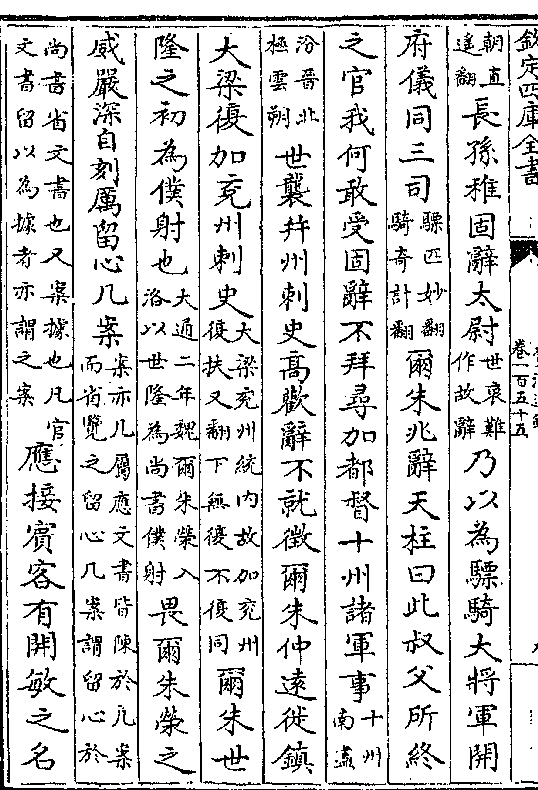 欽定四庫全書
卷一百五十五
朝直遥翻長孫稚固辭太尉世衰難作故辭乃以為驃騎大將軍開
府儀同三司驃匹妙翻騎奇計翻爾朱兆辭天柱曰此叔父所終
之官我何敢受固辭不拜尋加都督十州諸軍事十州南盡
汾晉北極雲朔世襲并州刺史高歡辭不就徵爾朱仲遠徙鎮
大梁復加兖州刺史大梁兖州統内故加兖州復扶又翻下無復不復同爾朱世
隆之初為僕射也大通二年魏爾朱榮入洛以世隆為尚書僕射畏爾朱榮之
威嚴深自刻厲留心几案案亦几屬應文書皆陳於几案而省覽之留心几案謂留心於
尚書省文書也又案據也凡官文書留以為據者亦謂之案應接賓客有開敏之名